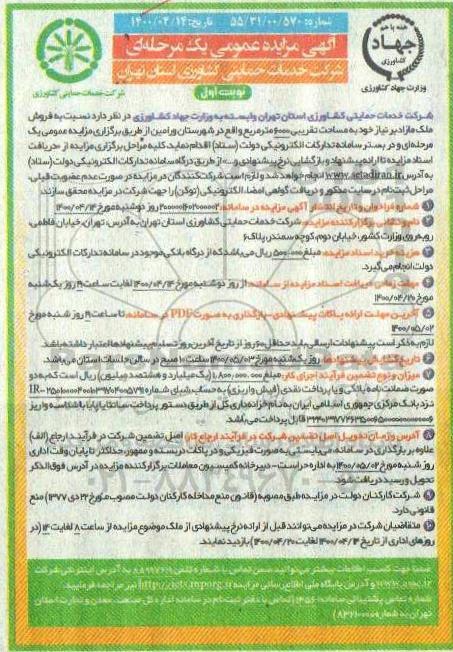 شماره: ۵۵/۳۱/۰۰/۵۷۰ تاریخ: ۱۴۰۰/۰۴/۱۴
همه با هم
جهاد
کشاورزی
وزارت جهاد کشاورزی
آگهی مزایده عمومی یک مرحله‌ای
شرکت خدمات حمایتی کشاورزی استان تهران
نوبت اول
شرکت خدمات حمایتی کشاورزی
شرکت خدمات حمایتی کشاورزی استان تهران وابسته به وزارت جهاد کشاورزی در نظر دارد نسبت به فروش
ملک مازاد بر نیاز خود به مساحت تقریبی ۶۰۰۰ مترمربع واقع در شهرستان ورامین از طریق برگزاری مزایده عمومی یک
مرحله‌ای و در بستر سامانه تدارکات الکترونیکی دولت (ستاد) اقدام نماید. کلیه مراحل برگزاری مزایده از «دریافت
اسناد مزایده تا ارائه پیشنهاد و بازگشایی نرخ پیشنهادی و...» از طریق درگاه سامانه تدارکات الکترونیکی دولت (ستاد)
به آدرس www.setadiran.ir انجام خواهد شد و لازم است شرکت‌کنندگان در مزایده در صورت عدم عضویت قبلی،
مراحل ثبت‌نام در سایت مذکور و دریافت گواهی امضاء الکترونیکی (توکن) را جهت شرکت در مزایده محقق سازند.
۱ شماره فراخوان و تاریخ انتشار آگهی مزایده در سامانه: روز دوشنبه مورخ ۱۴۰۰/۰۴/۱۴
۲ نام و نشانی برگزارکننده مزایده: شرکت خدمات حمایتی کشاورزی استان تهران به آدرس: تهران، خیابان فاطمی،
روبه‌روی وزارت کشور، خیابان دوم، کوچه سمندر، پلاک ۶
۳ هزینه خرید اسناد مزایده: مبلغ ۵۰۰,۰۰۰ ریال می‌باشد که از درگاه بانکی موجود در سامانه تدارکات الکترونیکی
دولت انجام می‌گیرد.
۴ مهلت زمانی دریافت اسناد مزایده از سامانه: از روز دوشنبه مورخ ۱۴۰۰/۰۴/۱۴ لغایت ساعت ۱۹ روز یک‌شنبه
مورخ ۱۴۰۰/۰۴/۲۰
۵ آخرین مهلت ارائه پاکات پیشنهادی-بارگذاری به صورت PDF در سامانه: تا ساعت ۱۹ روز شنبه مورخ
۱۴۰۰/۰۵/۰۲
لازم به ذکر است پیشنهادات ارسالی باید حداقل ۶۰ روز از تاریخ آخرین روز تسلیم پیشنهادها اعتبار داشته باشد.
۶ تاریخ گشایش پیشنهادها: روز یک‌شنبه مورخ ۱۴۰۰/۰۵/۰۳ ساعت ۱۰ صبح در سالن جلسات استان می‌باشد.
۷ میزان و نوع تضمین فرآیند اجرای کار: مبلغ ۱,۸۰۰,۰۰۰,۰۰۰ (یک میلیارد و هشتصد میلیون) ریال است که به دو
صورت ضمانت نامه بانکی و یا پرداخت نقدی (فیش واریزی) به حساب شبای شماره
نزد بانک مرکزی جمهوری اسلامی ایران به نام خزانه‌داری کل از طریق دستور پرداخت ساتنا یا پایا با شناسه واریز
قابل پرداخت می‌باشد.
۸ آدرس و زمان تحویل اصل تضمین شرکت در فرآیند ارجاع کار: اصل تضمین شرکت در فرآیند ارجاع (الف)
علاوه بر بارگذاری در سامانه، می‌بایستی به صورت فیزیکی و در پاکات دربسته و ممهور، حداکثر تا پایان وقت اداری
روز شنبه مورخ ۱۴۰۰/۰۵/۰۲ به اداره حراست- دبیرخانه کمیسیون معاملات برگزارکننده مزایده در آدرس فوق‌الذکر
تحویل و رسید دریافت شود.
۹ شرکت کارکنان دولت در مزایده طبق مصوبه (قانون منع مداخله کارکنان دولت مصوب مورخ ۲۲ دی ۱۳۳۷) منع
قانونی دارد.
۱۰ متقاضیان شرکت در مزایده می‌توانند قبل از ارائه نرخ پیشنهادی از ملک موضوع مزایده از ساعت ۸ لغایت ۱۴ (در
روزهای اداری از تاریخ ۱۴۰۰/۰۴/۱۴ لغایت ۱۴۰۰/۰۴/۲۰) بازدید نمایند.
ضمنا جهت کسب اطلاعات بیشتر می‌توانید ضمن تماس با شماره تلفن به آدرس اینترنتی شرکت
و آدرس پایگاه ملی اطلاع‌رسانی مزایده http://iets.mporg.ir نیز مراجعه فرمایید.
شماره تماس پشتیبانی سامانه: ۱۴۵۶ (تماس با دفتر ثبت‌نام در سامانه اداره کل صنعت، معدن و تجارت استان
تهران به شماره )